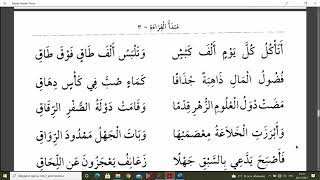 مُبْتَدَأُ الْقِرَاءَةِ - ٣
أَتَأْكُلُ كُلَّ يَوْمٍ أَلْفَ كَبْشٍ وَتَلْبَسُ أَلْفَ طَاقٍ فَوْقَ طَاقِ
فُضُولُ الْمَالِ ذَاهِبَةٌ جُذَافًا كَمَاءٍ صُبَّ فِي كَأْسٍ دِهَاقِ
مَضَتْ دُوَلُ الْعُلُومِ الزُّهْرِ قِدْمًا وَقَامَتْ دَوْلَةُ الصُّفْرِ الرِّقَاقِ
وَأَبْرَزَتِ الْخَلَاعَةُ مِعْصَمَيْهَا وَبَاتَ الْجَهْلُ مَمْدُودَ الرِّوَاقِ
فَأَصْبَحَ يَدَّعِي بِالسَّبْقِ جَهْلًا زَعَانِفُ يَعْجُزُونَ عَنِ اللِّحَاقِ